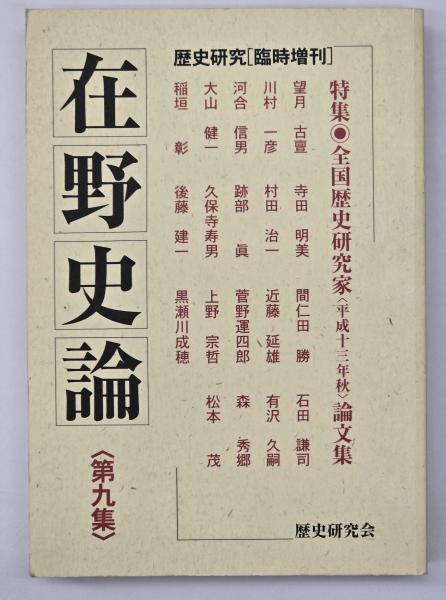 歴史研究[臨時増刊]
特集◉全国歴史研究家〈平成十三年秋〉論文集
望月 古亶 寺田 明美 間仁田 勝 石田 謙司
川村 一彦 村田 治一 近藤 延雄 有沢 久嗣
河合 信男 跡部 眞 菅野運四郎 森 秀郷
大山 健一 久保寺寿男 上野 宗哲 松本 茂
稲垣 彰 後藤 建一 黒瀬川成穂
在野史論
〈第九集〉
歴史研究会